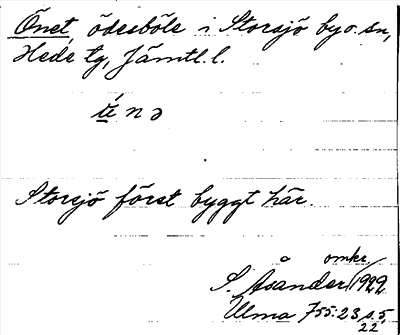 Önet, ödesböle i Storsjö by o. sn,
Hede tg, Jämtl. l.
nə
Storsjö först byggt här.
omkr
S. Åsander 1922
Ulma 755:23 s. 5,
22